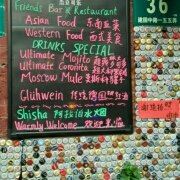 Friends Bar & Restaurant
Asian Food 东南亚菜
Western Food 西式美食
DRINKS SPECIAL
Ultimate Mojito
Ultimate Coronita
Moscow Mule
Glühwein 传统德国红酒
Shisha 阿拉伯水烟
Warmly Welcome 欢迎光临
36